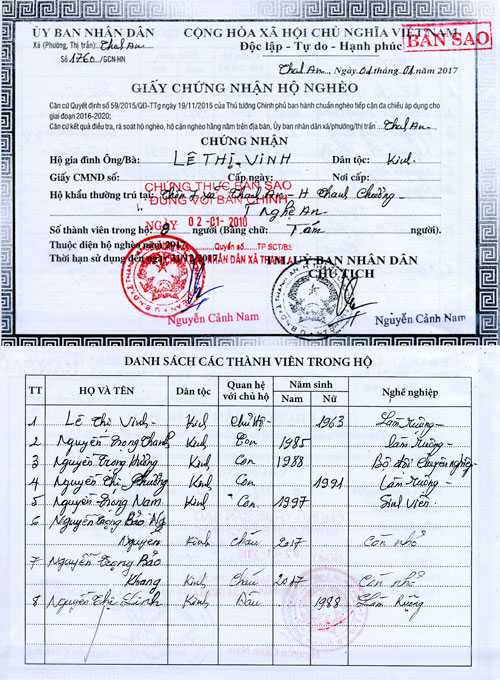 ỦY BAN NHÂN DÂN
CỘNG HÒA XÃ HỘI CHỦ NGHĨA VIỆT NAM
Xã (Phường, Thị trấn): Thanh An
Độc lập - Tự do - Hạnh phúc
BẢN SAO
Số 1760 /GCN-HN
Thanh An, Ngày 01 tháng 01 năm 2017
GIẤY CHỨNG NHẬN HỘ NGHÈO
Căn cứ Quyết định số 59/2015/QĐ-TTg ngày 19/11/2015 của Thủ tướng Chính phủ ban hành chuẩn nghèo tiếp cận đa chiều áp dụng cho
giai đoạn 2016-2020;
Căn cứ kết quả điều tra, rà soát hộ nghèo, hộ cận nghèo hằng năm trên địa bàn, Ủy ban nhân dân xã/phường/thị trấn Thanh An
CHỨNG NHẬN
Hộ gia đình Ông/Bà: LÊ THỊ VINH Dân tộc: Kinh
Giấy CMND số: Cấp ngày: Nơi cấp:
CHỨNG THỰC BẢN SAO
Hộ khẩu thường trú tại: Thôn xã Thanh An - H Thanh Chương -
ĐÚNG VỚI BẢN CHÍNH
T Nghệ An
NGÀY 02-01-2018
Số thành viên trong hộ: 8 người (Bằng chữ: Tám người).
Thuộc diện hộ nghèo năm 2017
Quyển số TP SCT/BS
Thời hạn sử dụng đến ngày 31/12/2017
TM. ỦY BAN NHÂN DÂN
CHỦ TỊCH
Nguyễn Cảnh Nam
Nguyễn Cảnh Nam
DANH SÁCH CÁC THÀNH VIÊN TRONG HỘ
TT HỌ VÀ TÊN Dân tộc Quan hệ với chủ hộ Năm sinh Nam Nữ Nghề nghiệp
1 Lê Thị Vinh Kinh Chủ Hộ 1963 Làm Ruộng
2 Nguyễn Trọng Thanh Kinh Con 1985 Làm Ruộng
3 Nguyễn Trọng Kinh Con 1988 Bộ đội chuyên nghiệp
4 Nguyễn Thị Phường Kinh Con 1991 Làm Ruộng
5 Nguyễn Trọng Nam Kinh Con 1997 Sinh Viên
6 Nguyễn Trọng Bảo Ng
Nguyên Kinh Cháu 2017 Còn nhỏ
7 Nguyễn Trọng Bảo
Khang Kinh Cháu 2017 Còn nhỏ
8 Nguyễn Thị Linh Kinh Dâu 1988 Làm Ruộng